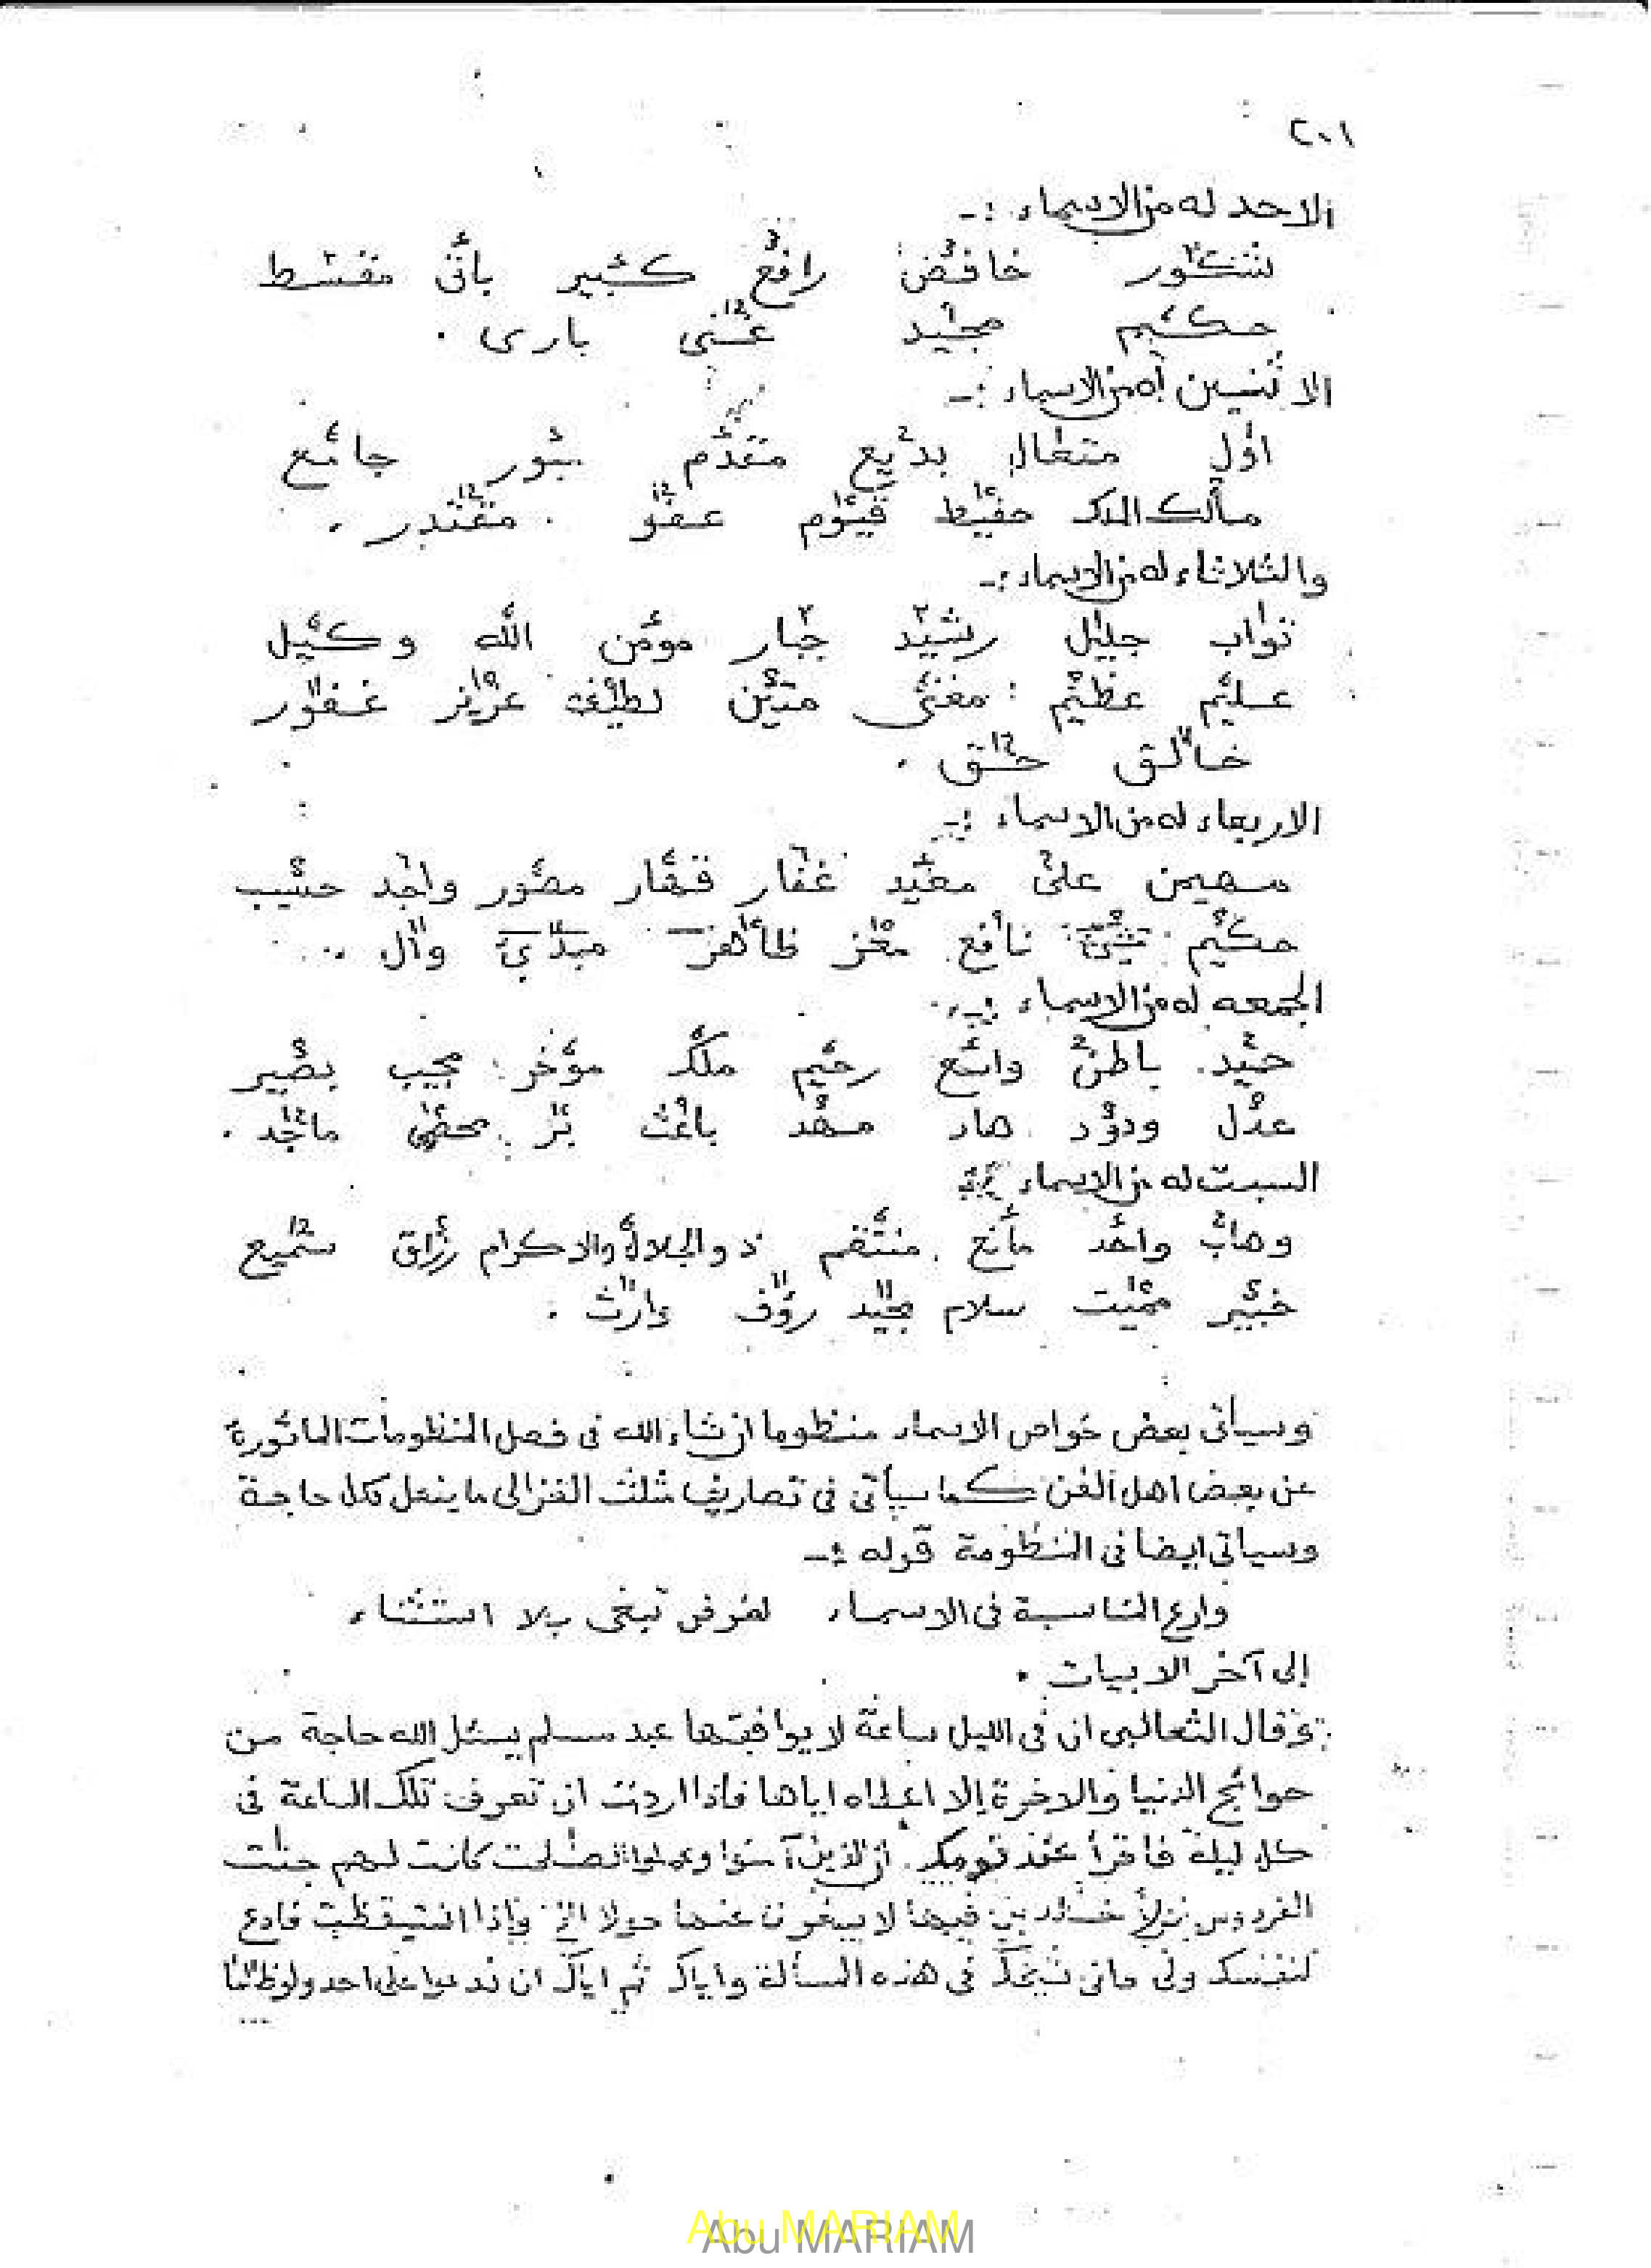 ٢٠١
الاحد له من الاسماء :ـ
شكور خافض رافع كبير باقى مقسط
حكيم مجيد غنى بارى .
الا ثنين له من الاسماء :ـ
اول متعال بديع مقدم جامع
مالك الملك حفيظ قيوم عفو . مقتدر .
والثلاثاء له من الاسماء :ـ
تواب جليل رشيد جبار مؤمن الله وكيل
عليم عظيم مغنى متين لطيف عزيز غفور
خالق حق .
الاربعاء له من الاسماء :ـ
مهيمن على معيد غفار قهار مصور واجد حسيب
حكيم نافع معز ظاهر مبدئ وال ..
الجمعه له من الاسماء :ـ
باطن واسع رحيم ملك مؤخر مجيب بصير
عدل ودود هاد باعث بر محصى ماجد .
السبت له من الاسماء
وهاب واحد مانع منتقم ذو الجلال والاكرام رزاق سميع
خبير مميت سلام مجيد رؤف وارث .
وسيأتى بعض خواص الاسماء منظوما ان شاء الله فى فصل المنظومات المأثورة
عن بعض اهل الفن كما سيأتى فى تصاريف مثلث الغزالى ما ينعل لكل حاجة
وسياتى ايضا فى المنظومة قوله :ـ
وارع المناسبة فى الاسماء لغرض تبغى بلا استثناء
إلى آخر الابيات .
وقال الثعالبى ان فى الليل ساعة لا يوافقها عبد مسلم يسئل الله حاجة من
حوائج الدنيا والاخرة إلا اعطاه اياها فاذا اردت ان تعرف تلك الساعة فى
كل ليلة فاقرأ عند نومك ان الذين آمنوا وعملوا الصلحت كانت لهم جنت
الفردوس نزلا خلدين فيها لا يبغون عنها حولا الخ وإذا استيقظت فادع
لنفسك ولى ولا تنى فى هذه المسألة واياك ثم اياك ان تدعوا على احد ولو ظالما
...
Abu MARIAM